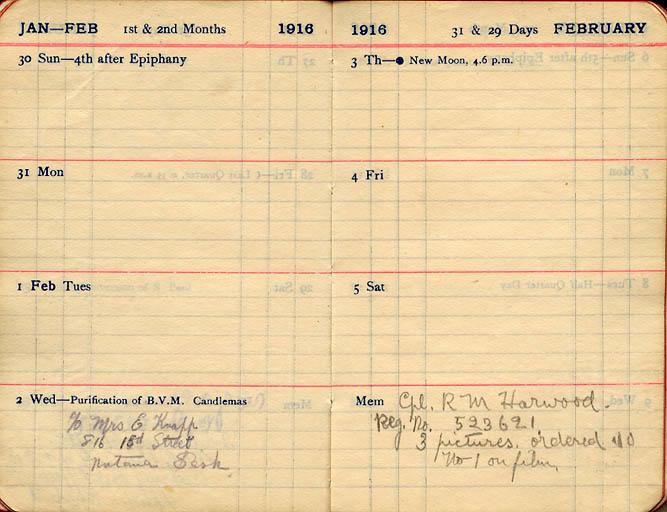 JAN—FEB 1st & 2nd Months 1916
30 Sun—4th after Epiphany
31 Mon
1 Feb Tues
2 Wed—Purification of B.V.M. Candlemas
℅ Mrs E Knapp
816 15th Street
Sask
1916 31 & 29 Days FEBRUARY
3 Th—● New Moon, 4.6 p.m.
4 Fri
5 Sat
Mem Cpl. R M Harwood.
Reg. No. 523621
3 pictures. ordered
No 1 on film